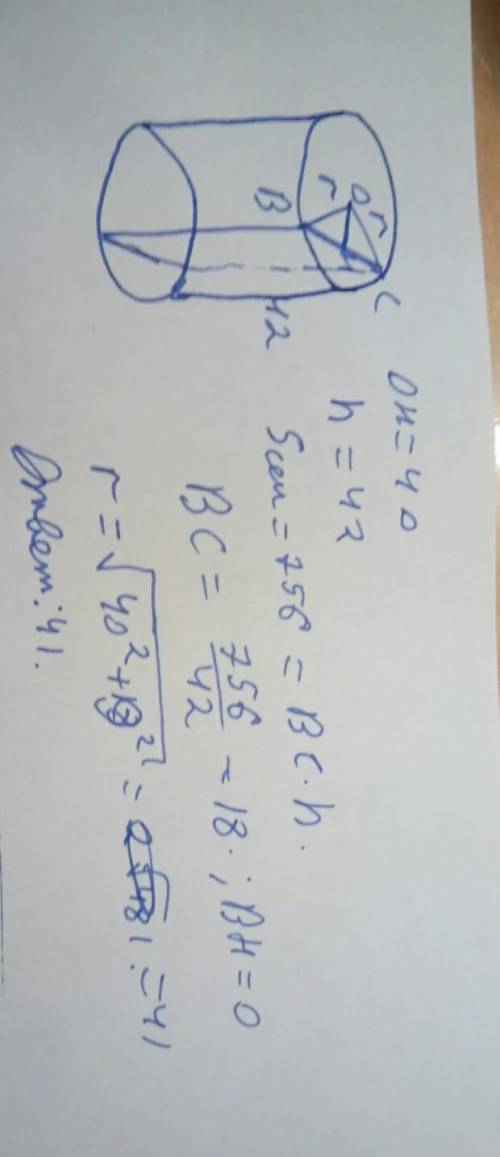 B
r
O
r
C
42
OH = 40
h = 42
Sсеч = 756 = BC · h.
BC = 756/42 = 18. ; BH = 0
r = √40² + 9² = 1681 = 41
Ответ: 41.